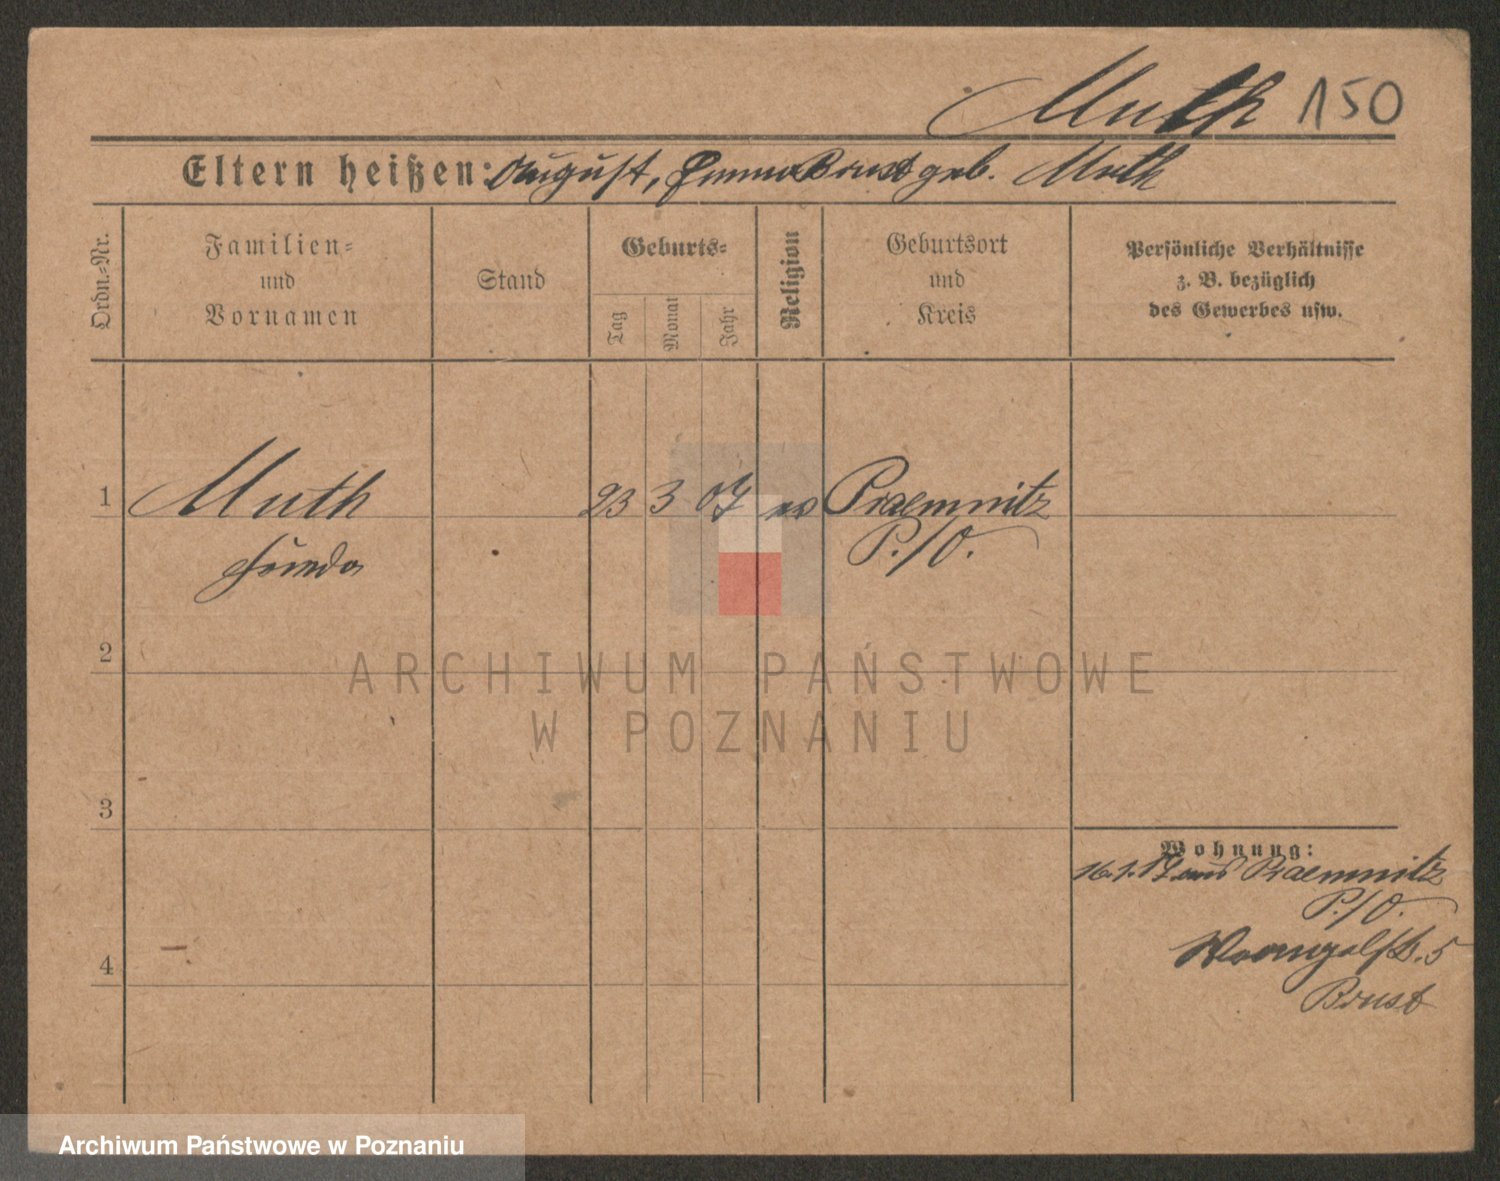 Muth 150
Eltern heißen: August, Emma Brust geb. Muth
Ordn.-Nr.
Familien-
und
Vornamen
Stand
Geburts-
Tag
Monat
Jahr
Religion
Geburtsort
und
Kreis
Persönliche Verhältnisse
z. B. bezüglich
des Gewerbes usw.
1 Muth 23 3 07 ev Praemnitz
Frieda P./O.
2
3
4
Wohnung:
16.1.17 aus Praemnitz
P./O.
Wrangelstr. 5
Brust
ARCHIWUM PAŃSTWOWE
W POZNANIU
Archiwum Państwowe w Poznaniu